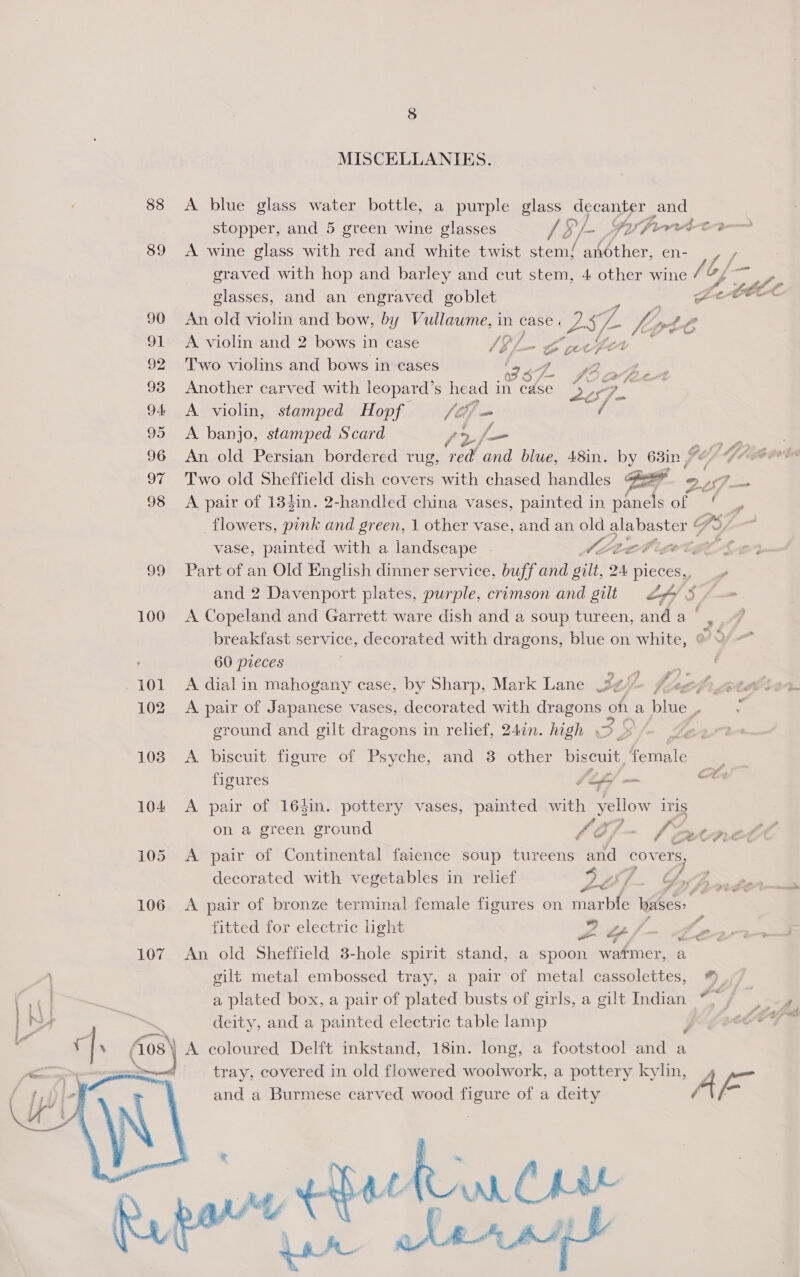 8
MISCELLANIES.
88 A blue glass water bottle, a purple glass decanter and
stopper, and 5 green wine glasses 18/-
89 A wine glass with red and white twist stem, another, en-
graved with hop and barley and cut stem, 4 other wine
glasses, and an engraved goblet
90 An old violin and bow, by Vullaume, in case. 25/-
91 A violin and 2 bows in case 18/-
92 Two violins and bows in cases 35/-
93 Another carved with leopard's head in case 25/-
94 A violin, stamped Hopf
95 A banjo, stamped Scard 12/-
96 An old Persian bordered rug, red and blue, 48in. by 63in
97 Two old Sheffield dish covers with chased handles 25/-
98 A pair of 13½in. 2-handled china vases, painted in panels of
flowers, pink and green, 1 other vase, and an old alabaster
vase, painted with a landscape
99 Part of an Old English dinner service, buff and gilt, 24 pieces,
and 2 Davenport plates, purple, crimson and gilt
100 A Copeland and Garrett ware dish and a soup tureen, and a
breakfast service, decorated with dragons, blue on white,
60 pieces
101 A dial in mahogany case, by Sharp, Mark Lane
102 A pair of Japanese vases, decorated with dragons on a blue
ground and gilt dragons in relief, 24in. high
103 A biscuit figure of Psyche, and 3 other biscuit female
figures
104 A pair of 16½in. pottery vases, painted with yellow iris
on a green ground
105 A pair of Continental faience soup tureens and covers,
decorated with vegetables in relief 25/-
106 A pair of bronze terminal female figures on marble bases:
fitted for electric light
107 An old Sheffield 3-hole spirit stand, a spoon warmer, a
gilt metal embossed tray, a pair of metal cassolettes,
a plated box, a pair of plated busts of girls, a gilt Indian
deity, and a painted electric table lamp
108 A coloured Delft inkstand, 18in. long, a footstool and a
tray, covered in old flowered woolwork, a pottery kylin,
and a Burmese carved wood figure of a deity